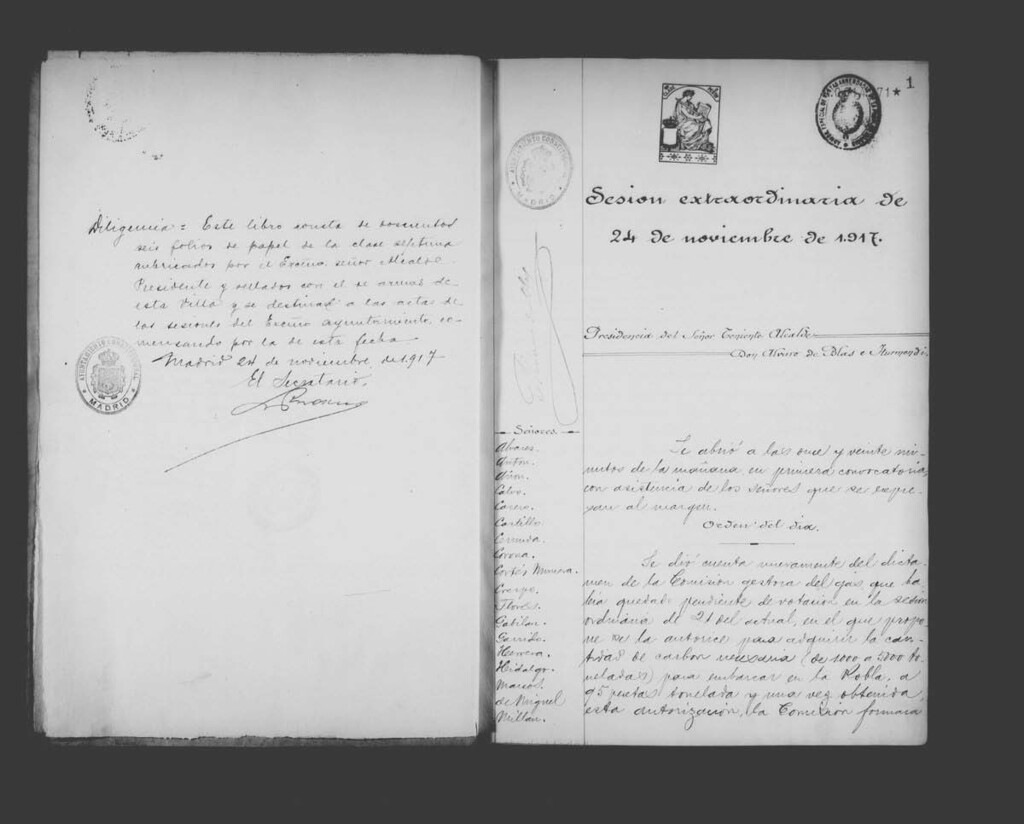 Diligencia = Este libro consta de doscientos
seis folios de papel de la clase séptima
rubricados por el Excmo. señor Alcalde
Presidente y sellados con el de armas de
esta Villa y se destinan a las actas de
las sesiones del Excmo ayuntamiento, co-
menzando por la de esta fecha
Madrid 24 de noviembre de 1917
El Secretario,
AYUNTAMIENTO CONSTITUCIONAL
MADRID
1
71*
AYUNTAMIENTO CONSTITUCIONAL
MADRID
Sesion extraordinaria de
24 de noviembre de 1.917.
Presidencia del Señor Teniente Alcalde
Don Alvaro de Blas e Iturmendi,
Señores
Alvarez.
Antón.
Calvo.
Castillo.
Cernuda.
Corona.
Cortés Munera.
Crespo.
Flores.
Gabilan.
Garrido.
Herrera.
Hidalgo.
Marcos.
de Miguel
Millan.
Se abrió a las once y veinte mi-
nutos de la mañana, en primera convocatoria,
con asistencia de los señores que se expre-
san al margen.
Orden del dia.
Se dió cuenta nuevamente del dicta-
men de la Comisión gestora del gas, que ha-
bía quedado pendiente de votación en la sesión
ordinaria de 21 del actual, en el que propo-
ne se la autorice para adquirir la can-
tidad de carbon necesaria (de 1000 a 5000 to-
neladas) para embarcar en la Robla, a
95 pesetas tonelada y una vez obtenida
esta autorización, la Comisión formara